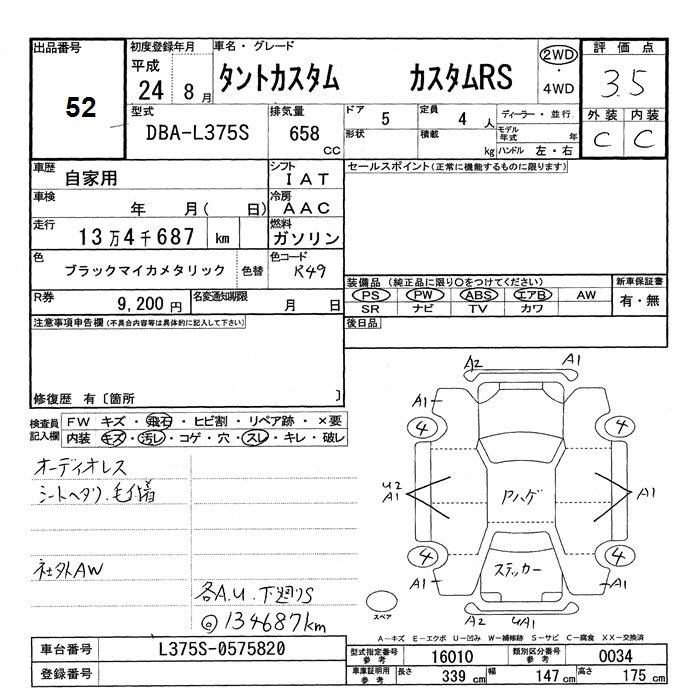 出品番号
52
初度登録年月
平成
24 8月
車名・グレード
タントカスタム カスタムRS
2WD
・
4WD
評価点
3.5
外装 内装
C C
型式
DBA-L375S
排気量
658
CC
ドア 5
定員 4 人
ディーラー・並行
形状
積載 kg
モデル年式 年
ハンドル 左・右
車歴
自家用
シフト
IAT
セールスポイント(正常に機能するものに限ります)
車検
年 月( 日)
冷房
AAC
走行
13万4千687 km
燃料
ガソリン
色
ブラックマイカメタリック
色替
色コード
R49
装備品(純正品に限り○をつけてください)
PS PW ABS エアB AW
SR ナビ TV カワ
新車保証書
有・無
R券
9,200円
名変通知期限
月 日
後日品
注意事項申告欄(不具合内容等は具体的に記入して下さい)
修復歴 有〔箇所 〕
検査員
記入欄
FW キズ・飛石・ヒビ割・リペア跡・×要
内装 キズ・汚レ・コゲ・穴・スレ・キレ・破レ
オーディオレス
シートヘタリ、毛付着
社外AW
各A.U.下廻りS
◎134687km
A2 A1
A1 A1
4 4
U2
A1
Pハゲ
A1
4 4
ステッカー
A1 A1
スペア
A2 UA1
A-キズ E-エクボ U-凹み W-補修跡 S-サビ C-腐食 XX-交換済
車台番号
L375S-0575820
登録番号
型式指定番号
参考
16010
類別区分番号
参考
0034
車庫証明用
参考
長さ 339 cm
幅 147 cm
高さ 175 cm